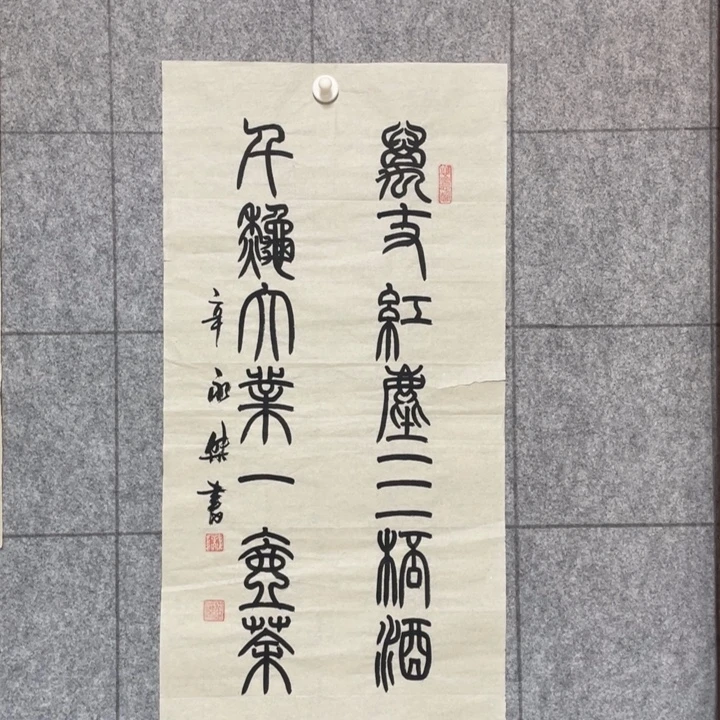 萬丈紅塵三杯酒
千秋大業一壺茶
辛永傑書